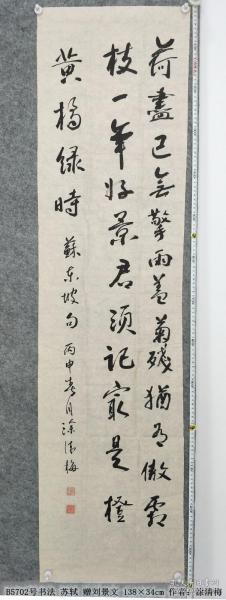 荷盡已无擎雨蓋菊殘猶有傲霜
枝一年好景君須记最是橙
黄橘绿時
蘇东坡句 丙申春月涂清梅
B5702号书法 苏轼 赠刘景文 138×34cm 作者：涂清梅